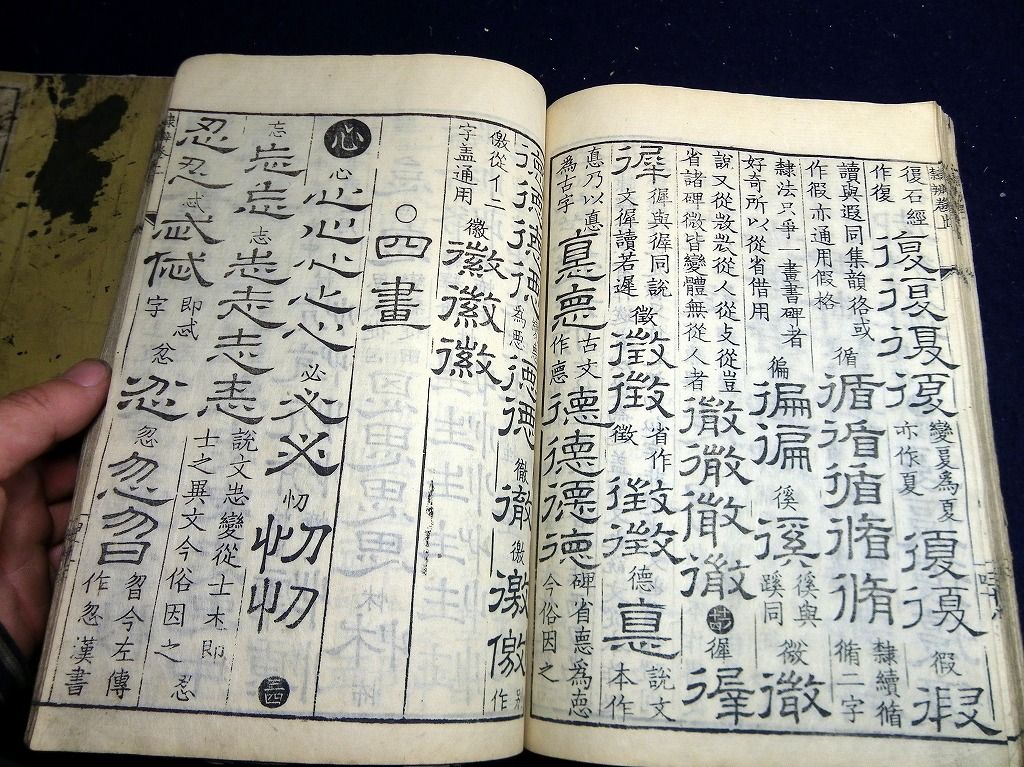 復石經
作復
復復夏復
變夏為夏
亦作夏
復
假
讀與遐同集韻徦或
作假亦通用假格
循
循循脩脩
隸續循
脩二字
隸法只爭一畫書碑者
好奇所以從省借用
徧
徧徧
徯
徯
徯與
蹊同
微
微
說又從敳敳從人從攴從豈
省諸碑微皆變體無從人者
微微微微
徲
徲
徲
徲與遲同說
文徲讀若遲
徵
徵徵
徵
省作
德
悳
說文
本作
悳乃以悳
為古字
悳悳
古文
作德
德德德德
碑省德為徳
今俗因之
德德德德
德德
徹
徹
徼
徼儌
作
儌從亻二
字蓋通用
徽
徽徽徽
○四畫
心
心
心心心心
必
必必
忉
忉忉
忘
忘忘
志
志志志志
說文志變從士木即
士之異文今俗因之
忍
忍忍
忒
忒忒
即忒
字
忿
忿
忽
忽曶
曶今左傳
作忽漢書